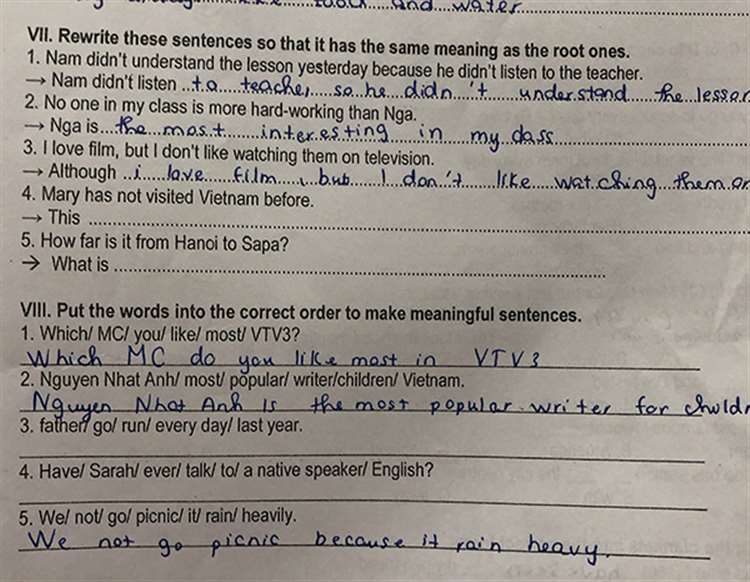 and water
VII. Rewrite these sentences so that it has the same meaning as the root ones.
1. Nam didn't understand the lesson yesterday because he didn't listen to the teacher.
→ Nam didn't listen to teacher so he didn't understand the lesson
2. No one in my class is more hard-working than Nga.
→ Nga is the most interesting in my class
3. I love film, but I don't like watching them on television.
→ Although i love film, but I don't like watching them on
4. Mary has not visited Vietnam before.
→ This ..............................
5. How far is it from Hanoi to Sapa?
→ What is ..............................
VIII. Put the words into the correct order to make meaningful sentences.
1. Which/ MC/ you/ like/ most/ VTV3?
Which MC do you like most in VTV3
2. Nguyen Nhat Anh/ most/ popular/ writer/children/ Vietnam.
Nguyen Nhat Anh is the most popular writer for child
3. father/ go/ run/ every day/ last year.
4. Have/ Sarah/ ever/ talk/ to/ a native speaker/ English?
5. We/ not/ go/ picnic/ it/ rain/ heavily.
We not go picnic because it rain heavy.